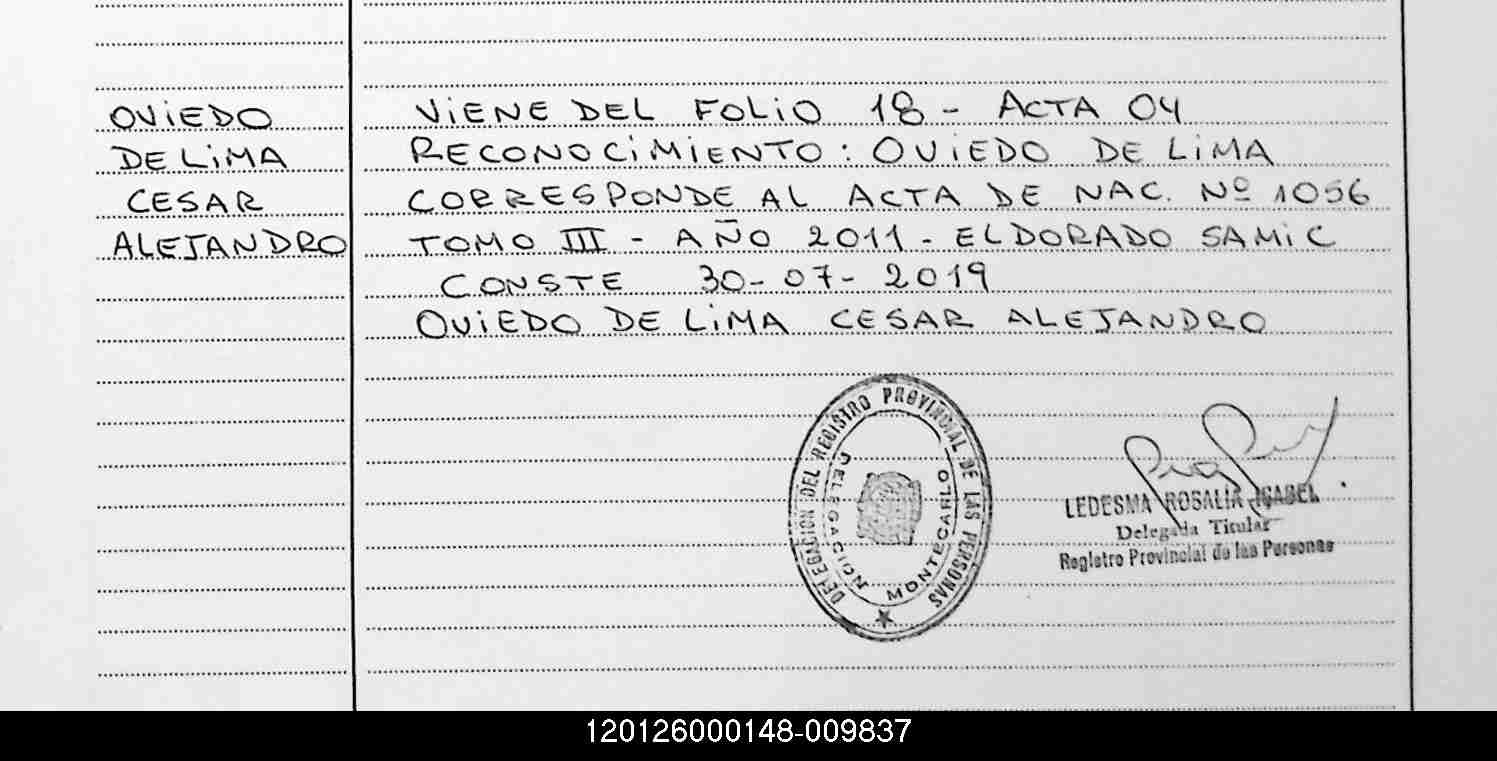 OVIEDO
DE LiMA
CESAR
ALEJANDRO
ViENE DEL FOLiO 18 - ACTA 04
RECONOCiMiENTO: OViEDO DE LiMA
CORRESPONDE AL ACTA DE NAC. Nº 1056
TOMO III - AÑO 2011 - ELDORADO SAMiC
CONSTE 30-07-2019
OViEDO DE LiMA CESAR ALEJANDRO
DELEGACION DEL REGISTRO PROVINCIAL DE LAS PERSONAS
DELEGACION MONTECARLO
LEDESMA ROSALIA ISABEL
Delegada Titular
Registro Provincial de las Personas
120126000148-009837